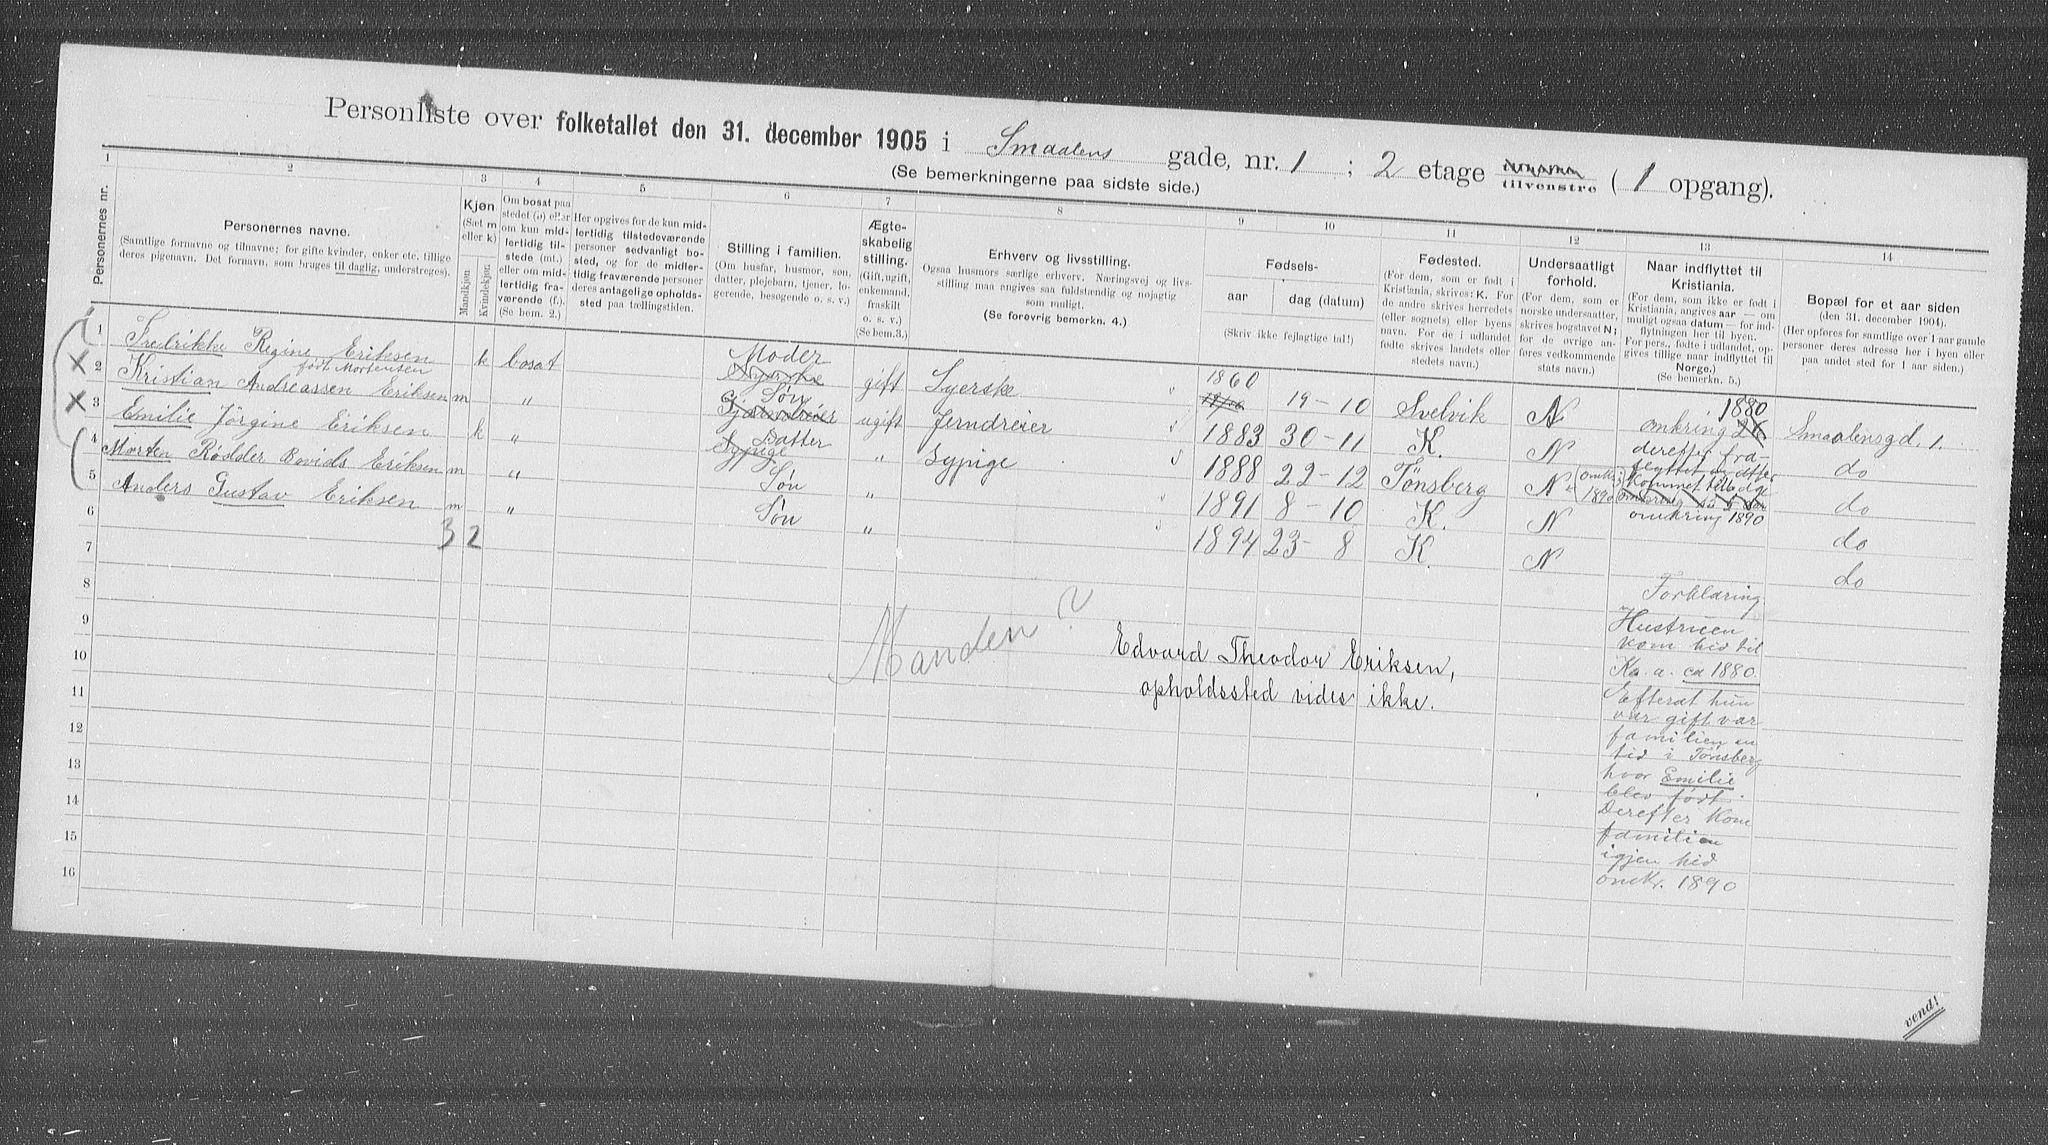 Personliste over folketallet den 31. december 1905 i Smaalens gade, nr. 1 ; 2 etage tilvenstre ( 1 opgang).
(Se bemerkningerne paa sidste side.)
1 2 3 4 5 6 7 8 9 10 11 12 13 14
Personernes nr.
Personernes navne.
(Samtlige fornavne og tilnavne; for gifte kvinder, enker etc. tillige
deres pigenavn. Det fornavn, som bruges til daglig, understreges).
Kjøn
(Sæt m
eller k)
Mandkjøn.
Kvindekjøn.
Om bosat paa
stedet (b) eller
om kun mid-
lertidig til-
stede (mt.)
eller om mid-
lertidig fra-
værende (f.).
(Se bem. 2.)
Her opgives for de kun mid-
lertidig tilstedeværende
personer sedvanligt bo-
sted, og for de midler-
tidig fraværende personer
deres antagelige opholds-
sted paa tællingstiden.
Stilling i familien.
(Om husfar, husmor, søn,
datter, plejebarn, tjener, lo-
gerende, besøgende o. s. v.)
Ægte-
skabelig
stilling.
(Gift, ugift,
enkemand,
fraskilt
o. s. v.)
(Se bem.3.)
Erhverv og livsstilling.
Ogsaa husmors særlige erhverv. Næringsvej og livs-
stilling maa angives saa fuldstændig og nøjagtig
som muligt.
(Se forøvrig bemerkn. 4.)
Fødsels-
aar
dag (datum)
(Skriv ikke fejlagtige tal!)
Fødested.
(For dem, som er født i
Kristiania, skrives: K. For
de andre skrives herredets
(eller sognets) eller byens
navn. For de i udlandet
fødte skrives landets eller
stedets navn.)
Undersaatligt
forhold.
(For dem, som er
norske undersaatter,
skrives bogstavet N;
for de øvrige an-
føres vedkommende
stats navn.)
Naar indflyttet til
Kristiania.
(For dem, som ikke er født i
Kristiania, angives aar — om
muligt ogsaa datum — for ind-
flytningen her til byen.
For pers., fødte i udlandet, op-
gives tillige naar indflyttet til
Norge.)
(Se bemerkn. 5.)
Bopæl for et aar siden
(den 31. december 1904).
(Her opføres for samtlige over 1 aar gamle
personer deres adresse her i byen eller
paa andet sted for 1 aar siden.)
1 Fredrikke Regine Eriksen k bosat Moder gift Syerske 1860 19-10 Svelvik N 1880 omkring Smaalensgd. 1.
født Mortensen
2 Kristian Andreassen Eriksen m " Søn ugift Jerndreier 1883 30-11 K. N derefter fra- do
Gjørndreier
3 Emilie Jörgine Eriksen k " Datter " Sypige 1888 22-12 Tönsberg N do
Sypige
4 Morten Rødder Bovids Eriksen m " Søn " 1891 8-10 K. N omkring 1890 do
5 Anders Gustav Eriksen m " Søn " 1894 23-8 K. N do
6
3 2
7
8
9
10
11
12
13
14
15
16
Manden?
Edvard Theodor Eriksen,
opholdssted vides ikke.
Forklaring
Hustruen
kom hid til
Ka. a. ca 1880.
Efterat hun
var gift var
familien en
tid i Tönsberg
hvor Emilie
blev født.
Derefter kom
familien
igjen hid
omkr. 1890
vend!